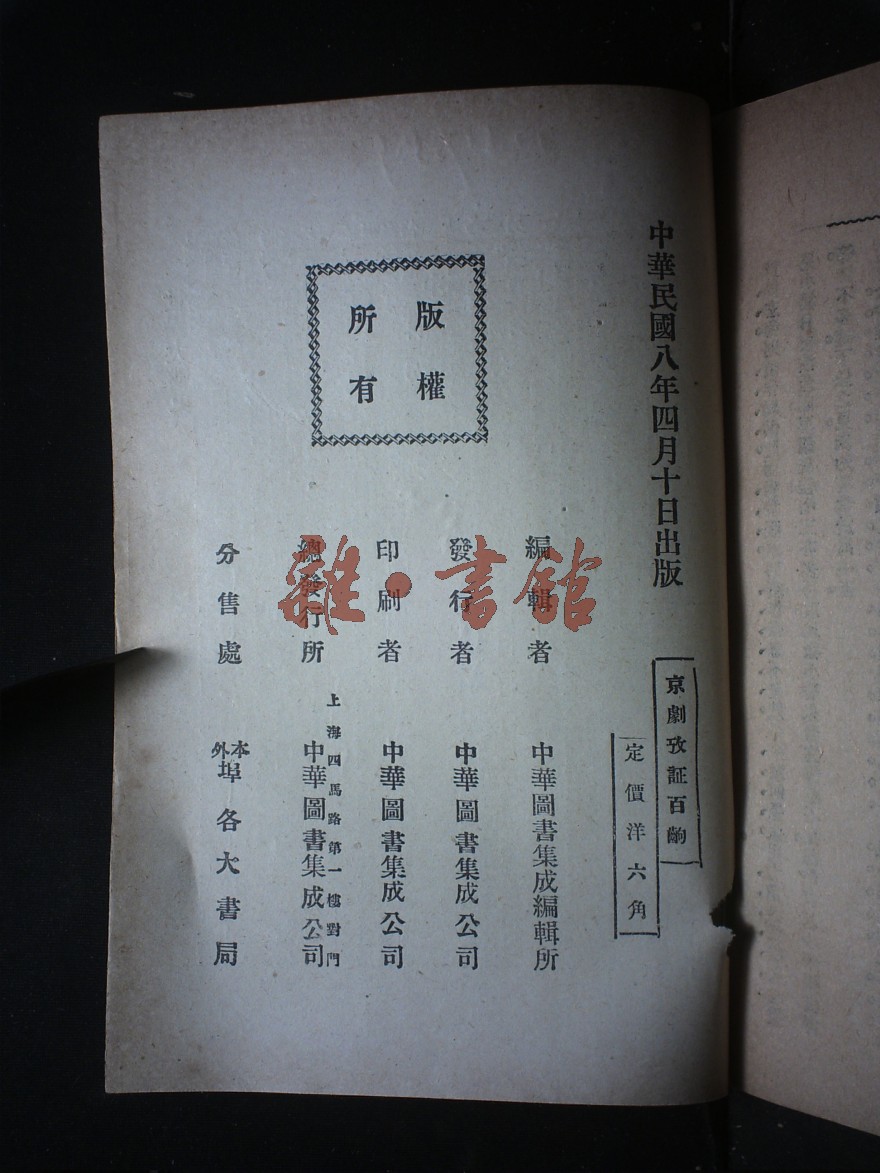 中華民國八年四月十日出版
京劇攷証百齣
定價洋六角
版權
所有
編輯者 中華圖書集成編輯所
發行者 中華圖書集成公司
印刷者 中華圖書集成公司
總發行所 上海四馬路第一樓對門 中華圖書集成公司
分售處 本外埠各大書局
雜·書館